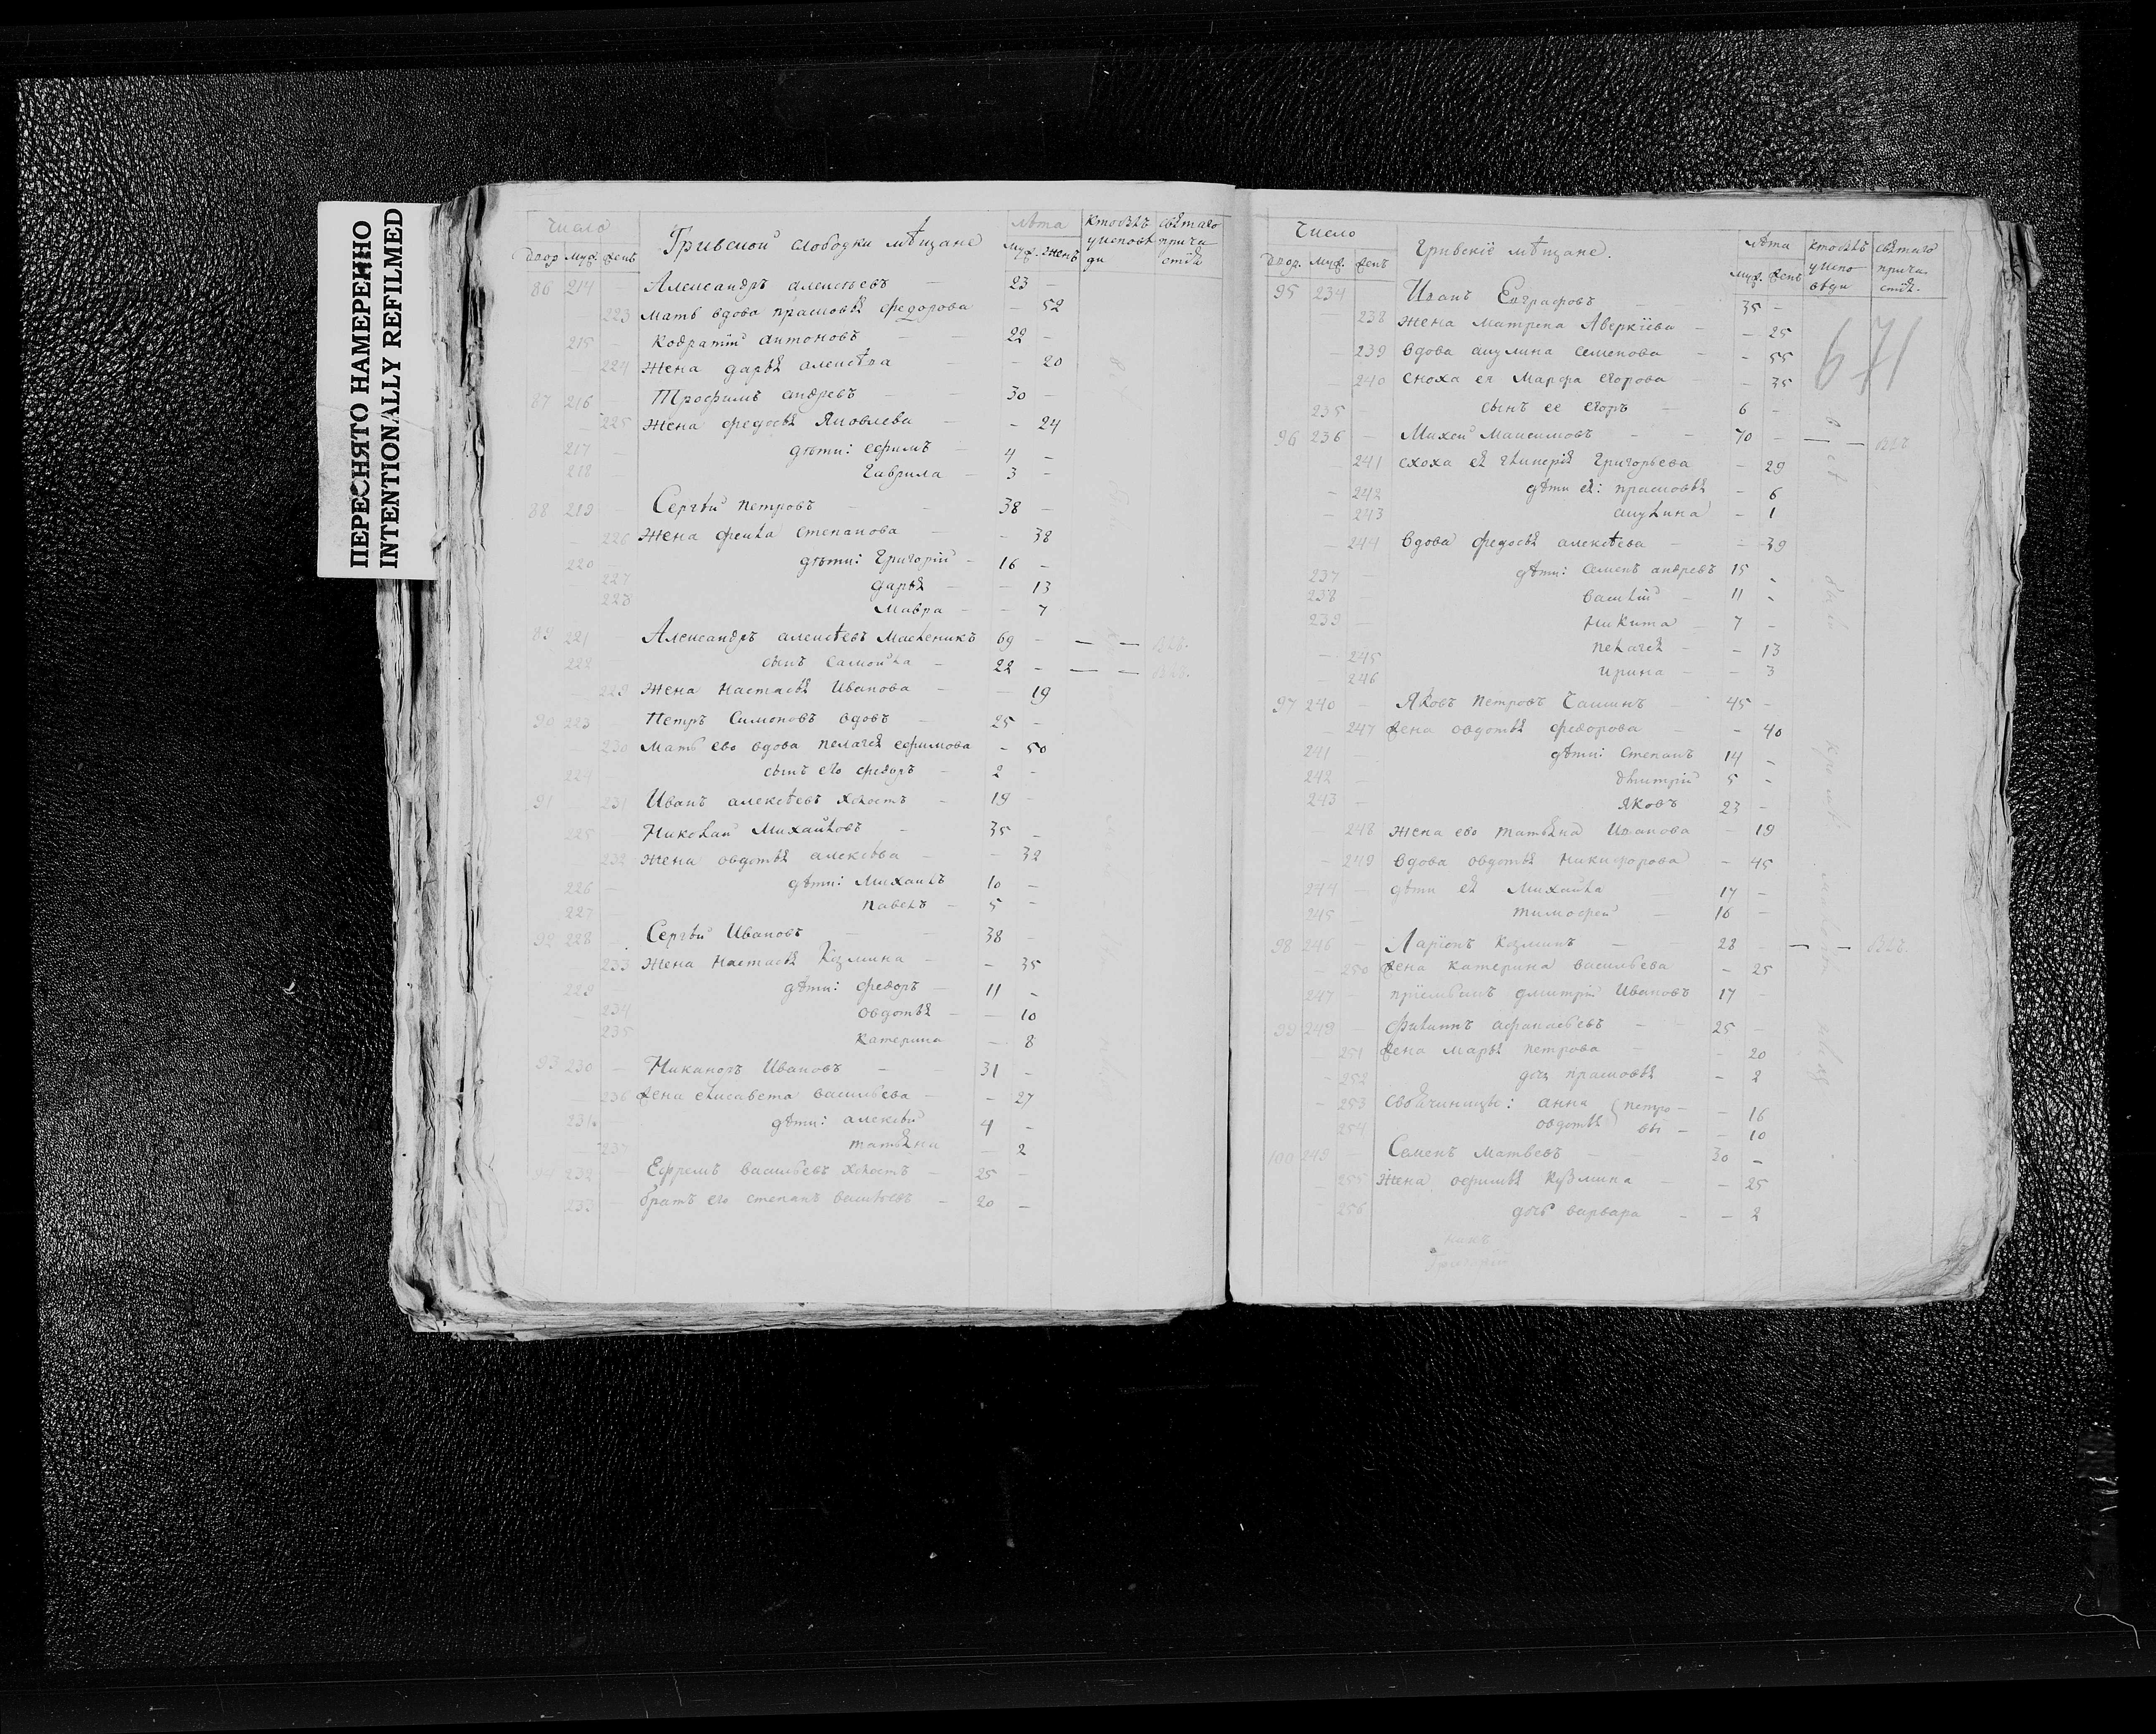 ПЕРЕСНЯТО НАМЕРЕННО
INTENTIONALLY REFILMED
Число Гривской слободки мѣщане лѣта
двор муж. жен муж. женъ
86 214 – Александръ алексѣевъ – 23 –
– 223 мать вдова прасковья федорова – 52
215 – Кодратій антоновъ – 22 –
– 224 жена дарья алексѣва – – 20
87 216 – Трофимъ андревъ – 30 –
– 225 жена федосья Яковлева – – 24
217 – дѣти: ефимъ – 4 –
218 – гаврила – 3 –
88 219 – Сергѣй петровъ – 38 –
– 226 жена фекла степанова – – 38
220 – дѣти: григорій – 16 –
227 дарья – – 13
228 мавра – – 7
89 221 Александръ алексѣевъ масленикъ 69 – – – влѣ.
222 сынъ самойла – 22 – – –
– 229 жена настасья Иванова – – 19
90 223 Петръ Симоновъ вдовъ – 25 –
– 230 мать ево вдова пелагея ефимова – 50
224 сынъ его федоръ – 2 –
91 231 Иванъ алексѣевъ холостъ – 19 –
225 – Николай Михайловъ – 35 –
– 232 жена овдотья алексѣва – – 32
226 – дѣти: михаилъ 10 –
227 павелъ – 5 –
92 228 – Сергѣй Ивановъ – 38 –
233 жена настасья Козмина – – 35
229 дѣти: федоръ – 11 –
– 234 овдотья – – 10
235 катерина – 8
93 230 – Никаноръ Ивановъ – 31 –
– 236 жена елисавета васильева – – 27
231 дѣти: алексѣй 4 –
– 237 татьяна – 2
94 232 – Ефремъ васильевъ холостъ – 25 –
233 – братъ его степанъ васильевъ – 20 –
Число Гривскіе мѣщане. лѣта
двор. муж. женъ муж. женъ
671
95 234 Иванъ Евграфовъ – 35 –
238 жена матрена Аверкіева – – 25
– 239 вдова акулина семенова – – 55
– 240 сноха ея марфа егорова – – 35
235 сынъ ее егоръ – 6 –
96 236 – Михей Максимовъ – 70 – – – влѣ
241 сноха ея гликерія григорьева – 29
– 242 дѣти ея: прасковья – 6
– 243 акулина – 1
– 244 вдова федосья алексѣева – – 39
237 – дѣти: семенъ андревъ 15 –
238 – василій – 11 –
239 – никита – 7 –
– 245 пелагея – – 13
– 246 ирина – – 3
97 240 – Яковъ петровъ – 45 –
– 247 жена овдотья федорова – – 40
241 дѣти: степанъ 14 –
242 – дмитрій 5 –
243 – яковъ 23 –
– 248 жена ево татьяна Иванова – 19
– 249 вдова овдотья никифорова – 45
244 – дѣти ея михайла 17 –
245 – тимофей – 16 –
98 246 – Ларіонъ козминъ – 28 – – – влѣ
– 250 жена катерина васильева – 25
247 – пріемышъ дмитрій Ивановъ 17 –
99 248 – Филиппъ афанасьевъ – 25 –
– 251 жена марья петрова – – 20
– 252 дочь прасковья – 2
– 253 своячиницы: анна (петро– – 16
254 овдотья вы – – 10
100 249 – Семенъ матвеевъ – 30 –
– 255 жена офимья кузмина – – 25
– 256 дочь варвара – – 2